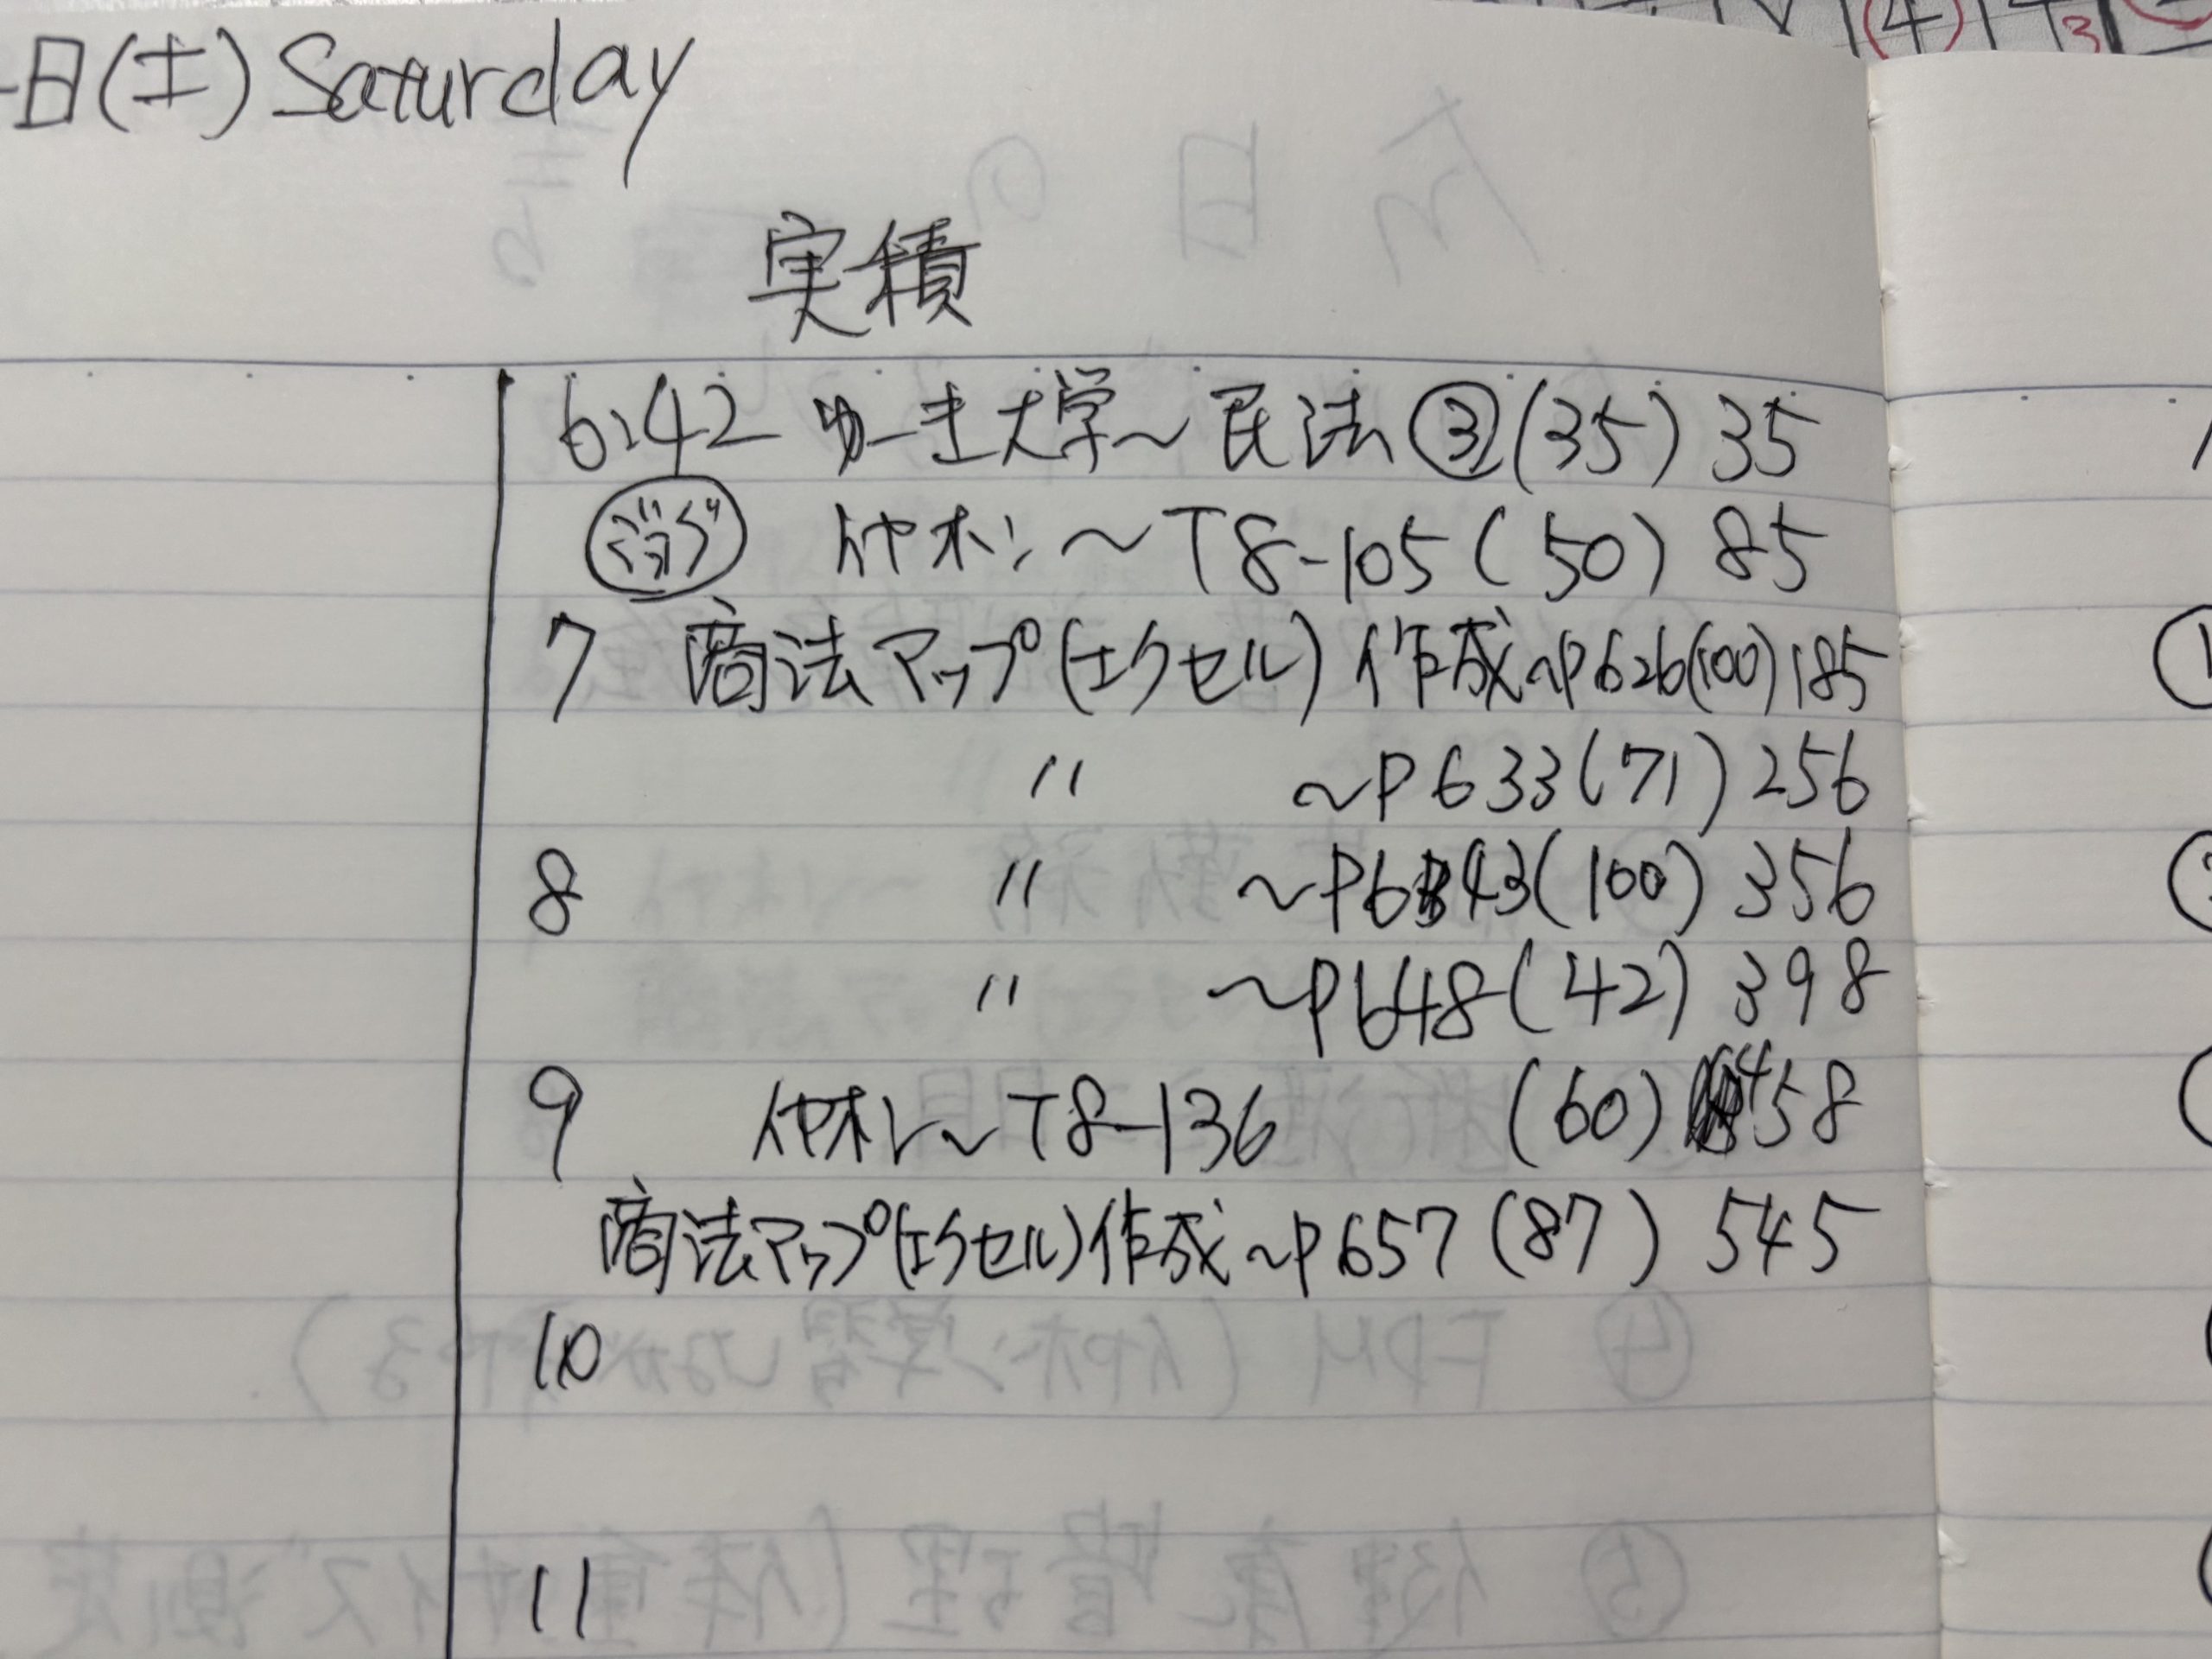 日(土) Saturday
実積
6:42 ゆーき大学〜民法③(35) 35
イヤホン〜T8-105(50) 85
7 商法マップ(エクセル)作成〜P626(100)185
〃 〜P633(71)256
8 〃 〜P643(100)356
〃 〜P648(42)398
9 イヤホン〜T8-136 (60)458
商法マップ(エクセル)作成〜P657(87)545
10
11